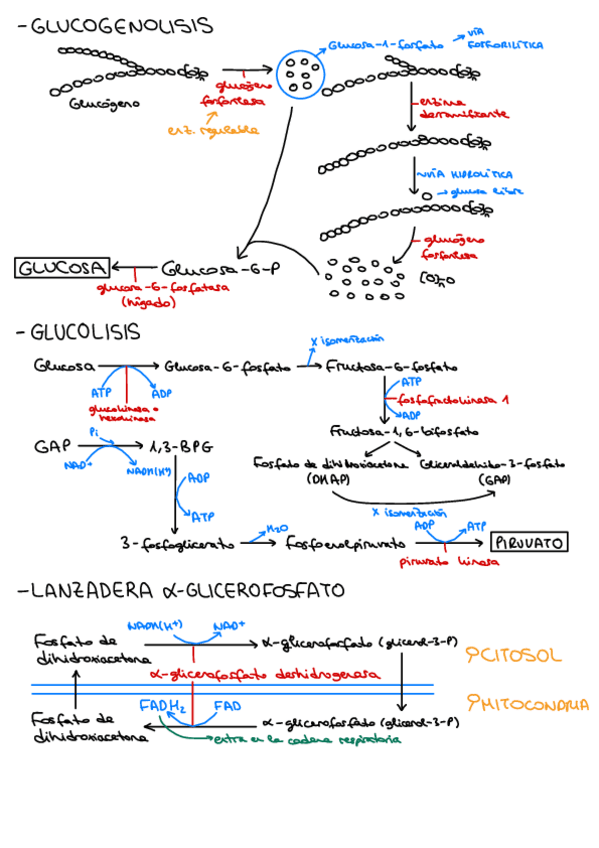 -GLUCOGENOLISIS
Glucosa-1-fosfato → VÍA
FOSFORILÍTICA
Glucógeno
glucógeno
fosforilasa
enz. regulable
enzima
desramificante
VÍA HIDROLÍTICA
→ glucosa libre
glucógeno
fosforilasa
GLUCOSA ← Glucosa-6-P
glucosa-6-fosfatasa
(hígado)
-GLUCOLISIS
Glucosa → Glucosa-6-fosfato → Fructosa-6-fosfato
x isomerización
ATP ADP
glucokinasa o
hexokinasa
ATP
fosfofructokinasa 1
ADP
Fructosa-1,6-bifosfato
GAP → 1,3-BPG
Pi
NAD+ NADH(H+)
Fosfato de dihidroxiacetona
(DHAP)
Gliceraldehído-3-fosfato
(GAP)
x isomerización
ADP
ATP
3-fosfoglicerato → Fosfoenolpiruvato → PIRUVATO
H2O
ADP ATP
piruvato kinasa
-LANZADERA α-GLICEROFOSFATO
NADH(H+) NAD+
Fosfato de
dihidroxiacetona
α-glicerofosfato (glicerol-3-P)
CITOSOL
α-glicerofosfato deshidrogenasa
MITOCONDRIA
FADH2 FAD
Fosfato de
dihidroxiacetona
α-glicerofosfato (glicerol-3-P)
entra en la cadena respiratoria